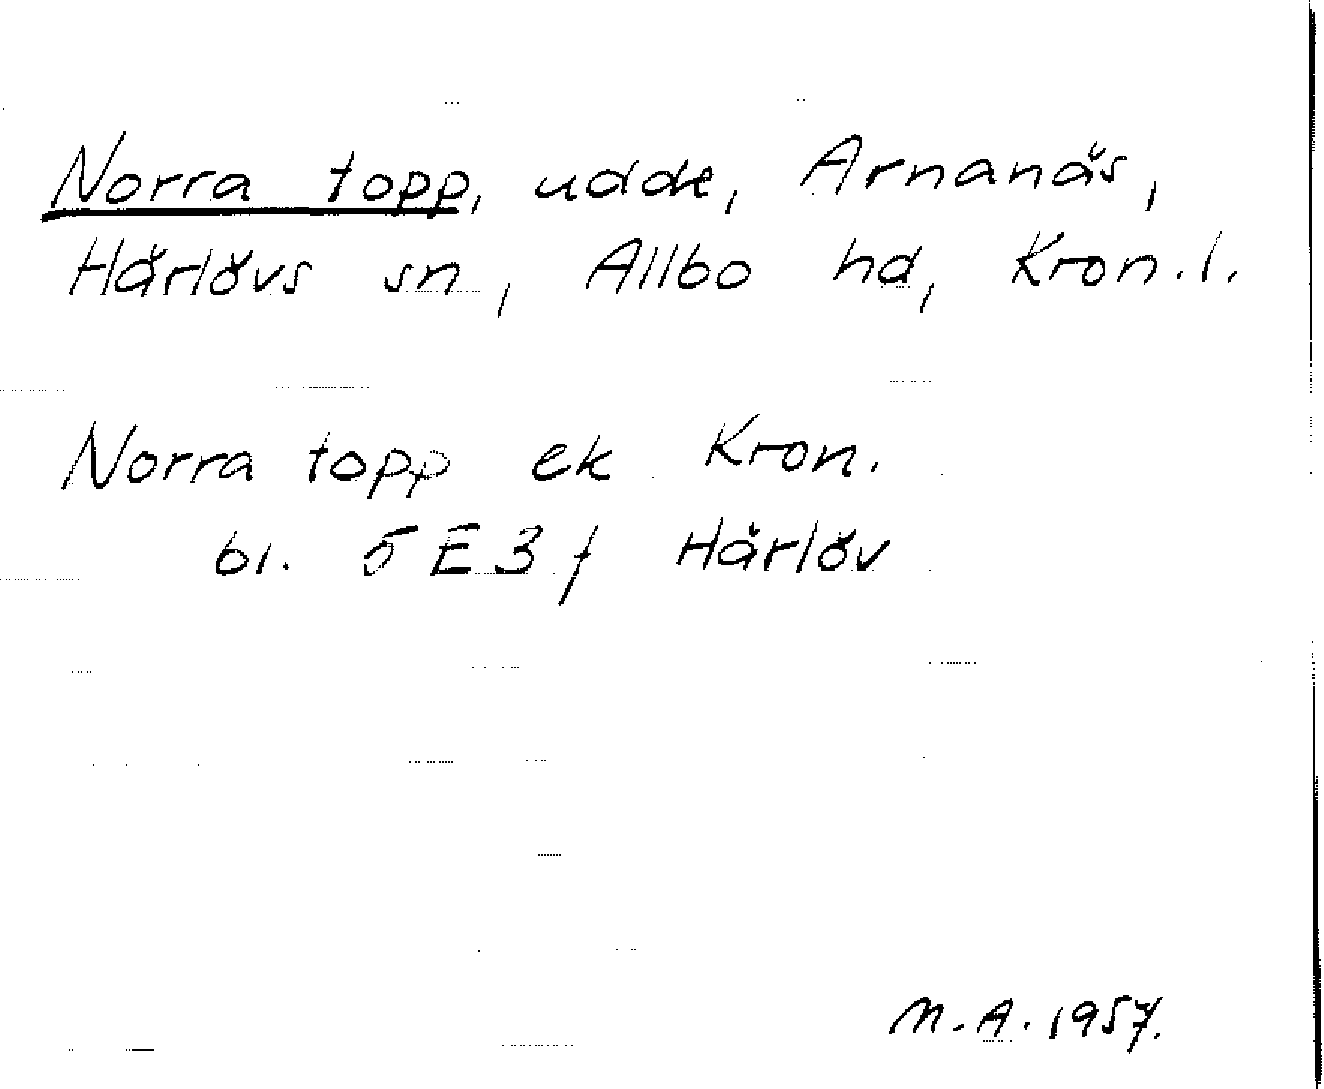 Norra topp, udde, Arnanäs,
Härlövs sn, Allbo hd, Kron.l.
Norra topp ek Kron.
bl. 5E3f Härlöv
M.A. 1957.